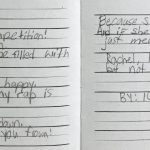 mpetition!
be filled with
happy,
my cap is
down,
you frown!
Because s
And if she
just mee
Rachel,
but not
BY: